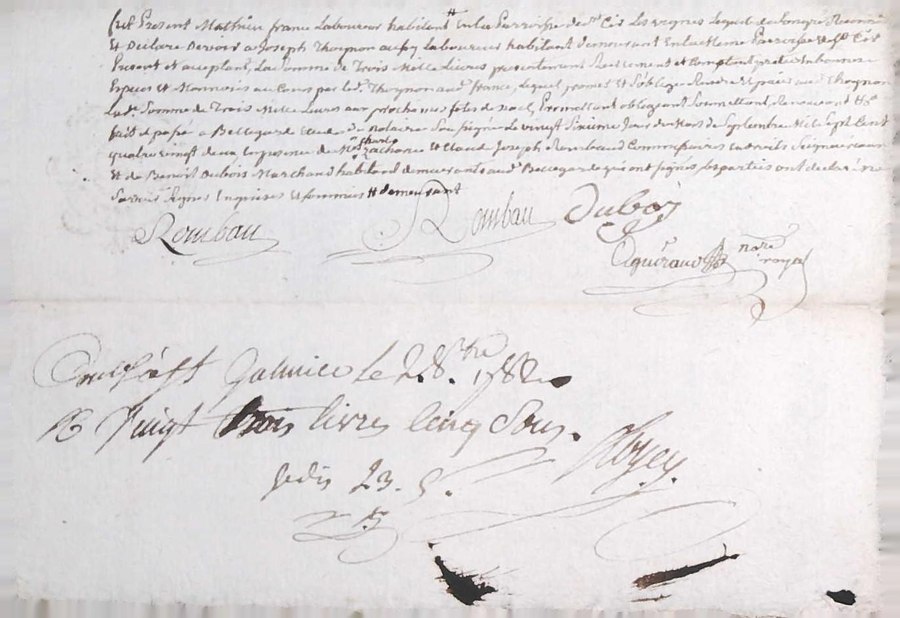 fut Present Mathieu franc Laboureur habitant # En La Parroisse de St Cir Les vignes Lequel de son gre
Et Declare Devoir a Joseph Thoynon aussy Laboureur habitant demeurant En la Meme Parroisse de St Cir
Present et acceptant, La Somme de Trois Mille Livres presentement Reellement et Comptant
Especes et Monnoies au Cours par led. Thoynon aud. franc, Lequel promet Et S'oblige Rendre Et paier aud. Thoynon
Lad. Somme de Trois Mille Livres aux prochaines fetes de noel, Promettant obligeant Soumettant, Renoncant &c
fait et passé a Bellegarde Etude du notaire Soussigné Le vingt Sixieme Jour du Mois de Septembre Mil Sept Cent
quatre vingt deux En presence de Charle Zacharie Et Claud Joseph Rombaud
Et de Benoit Dubois Marchand habitand demeurants aud. Bellegarde qui ont signés Les parties ont declaré ne
Savoir Signer Enquises et Sommées # demeurant
Rombau Rombau Dubois
nore royal
Le 28. 7bre 1782
R Vingt trois livres Cinq Sous.
Jedis 23. 5.